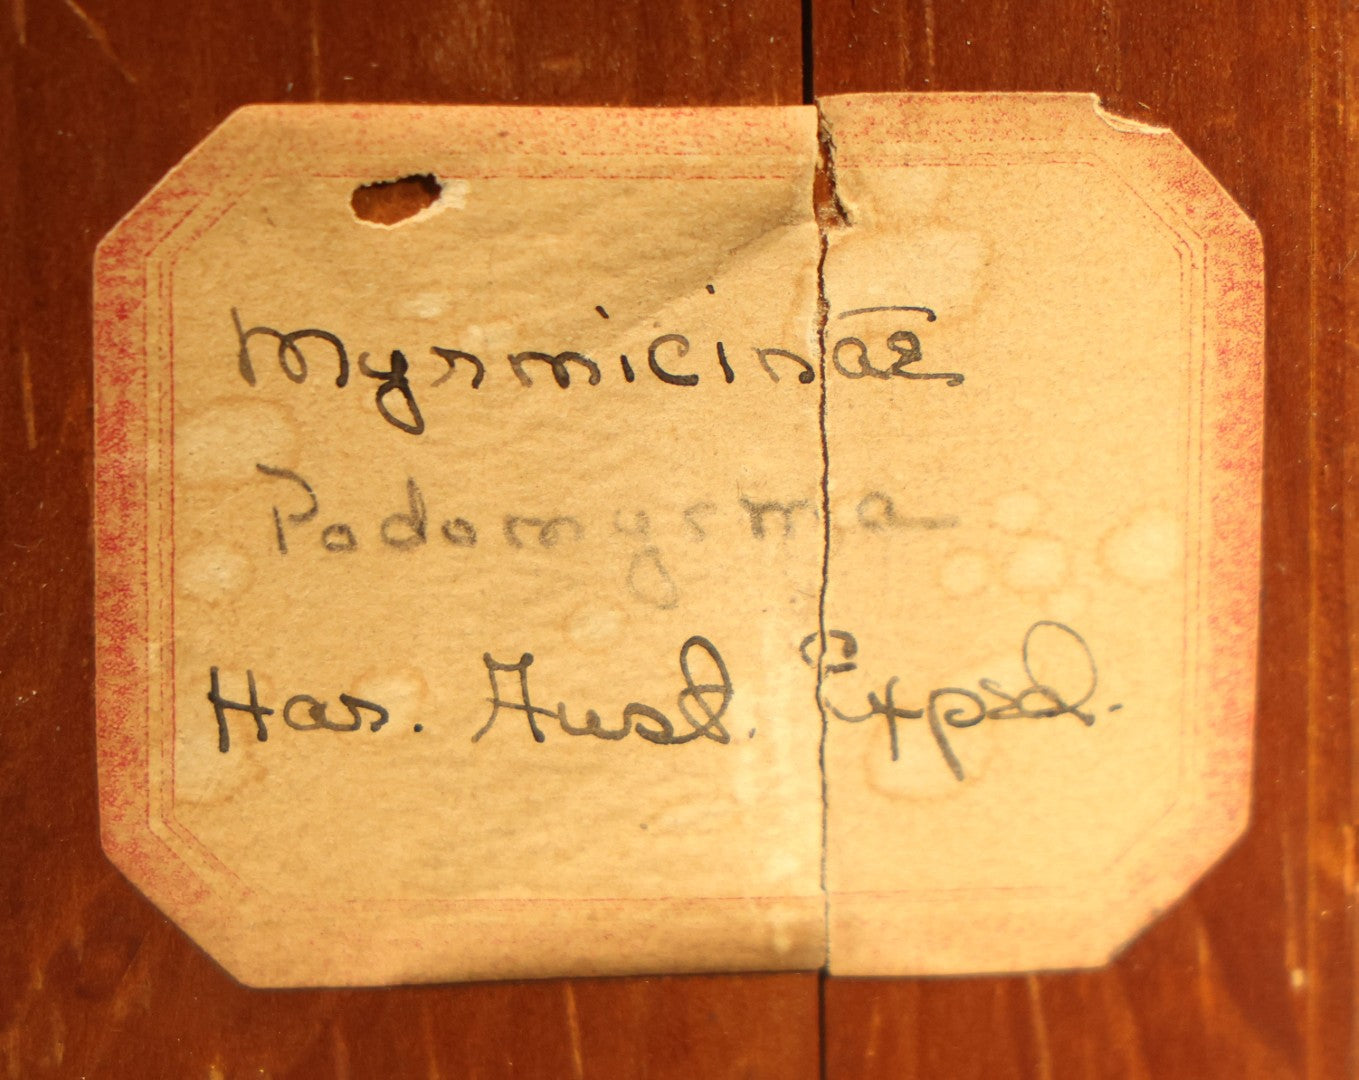 Myrmicinae
Podomyrma
Har. Aust. Expéd.